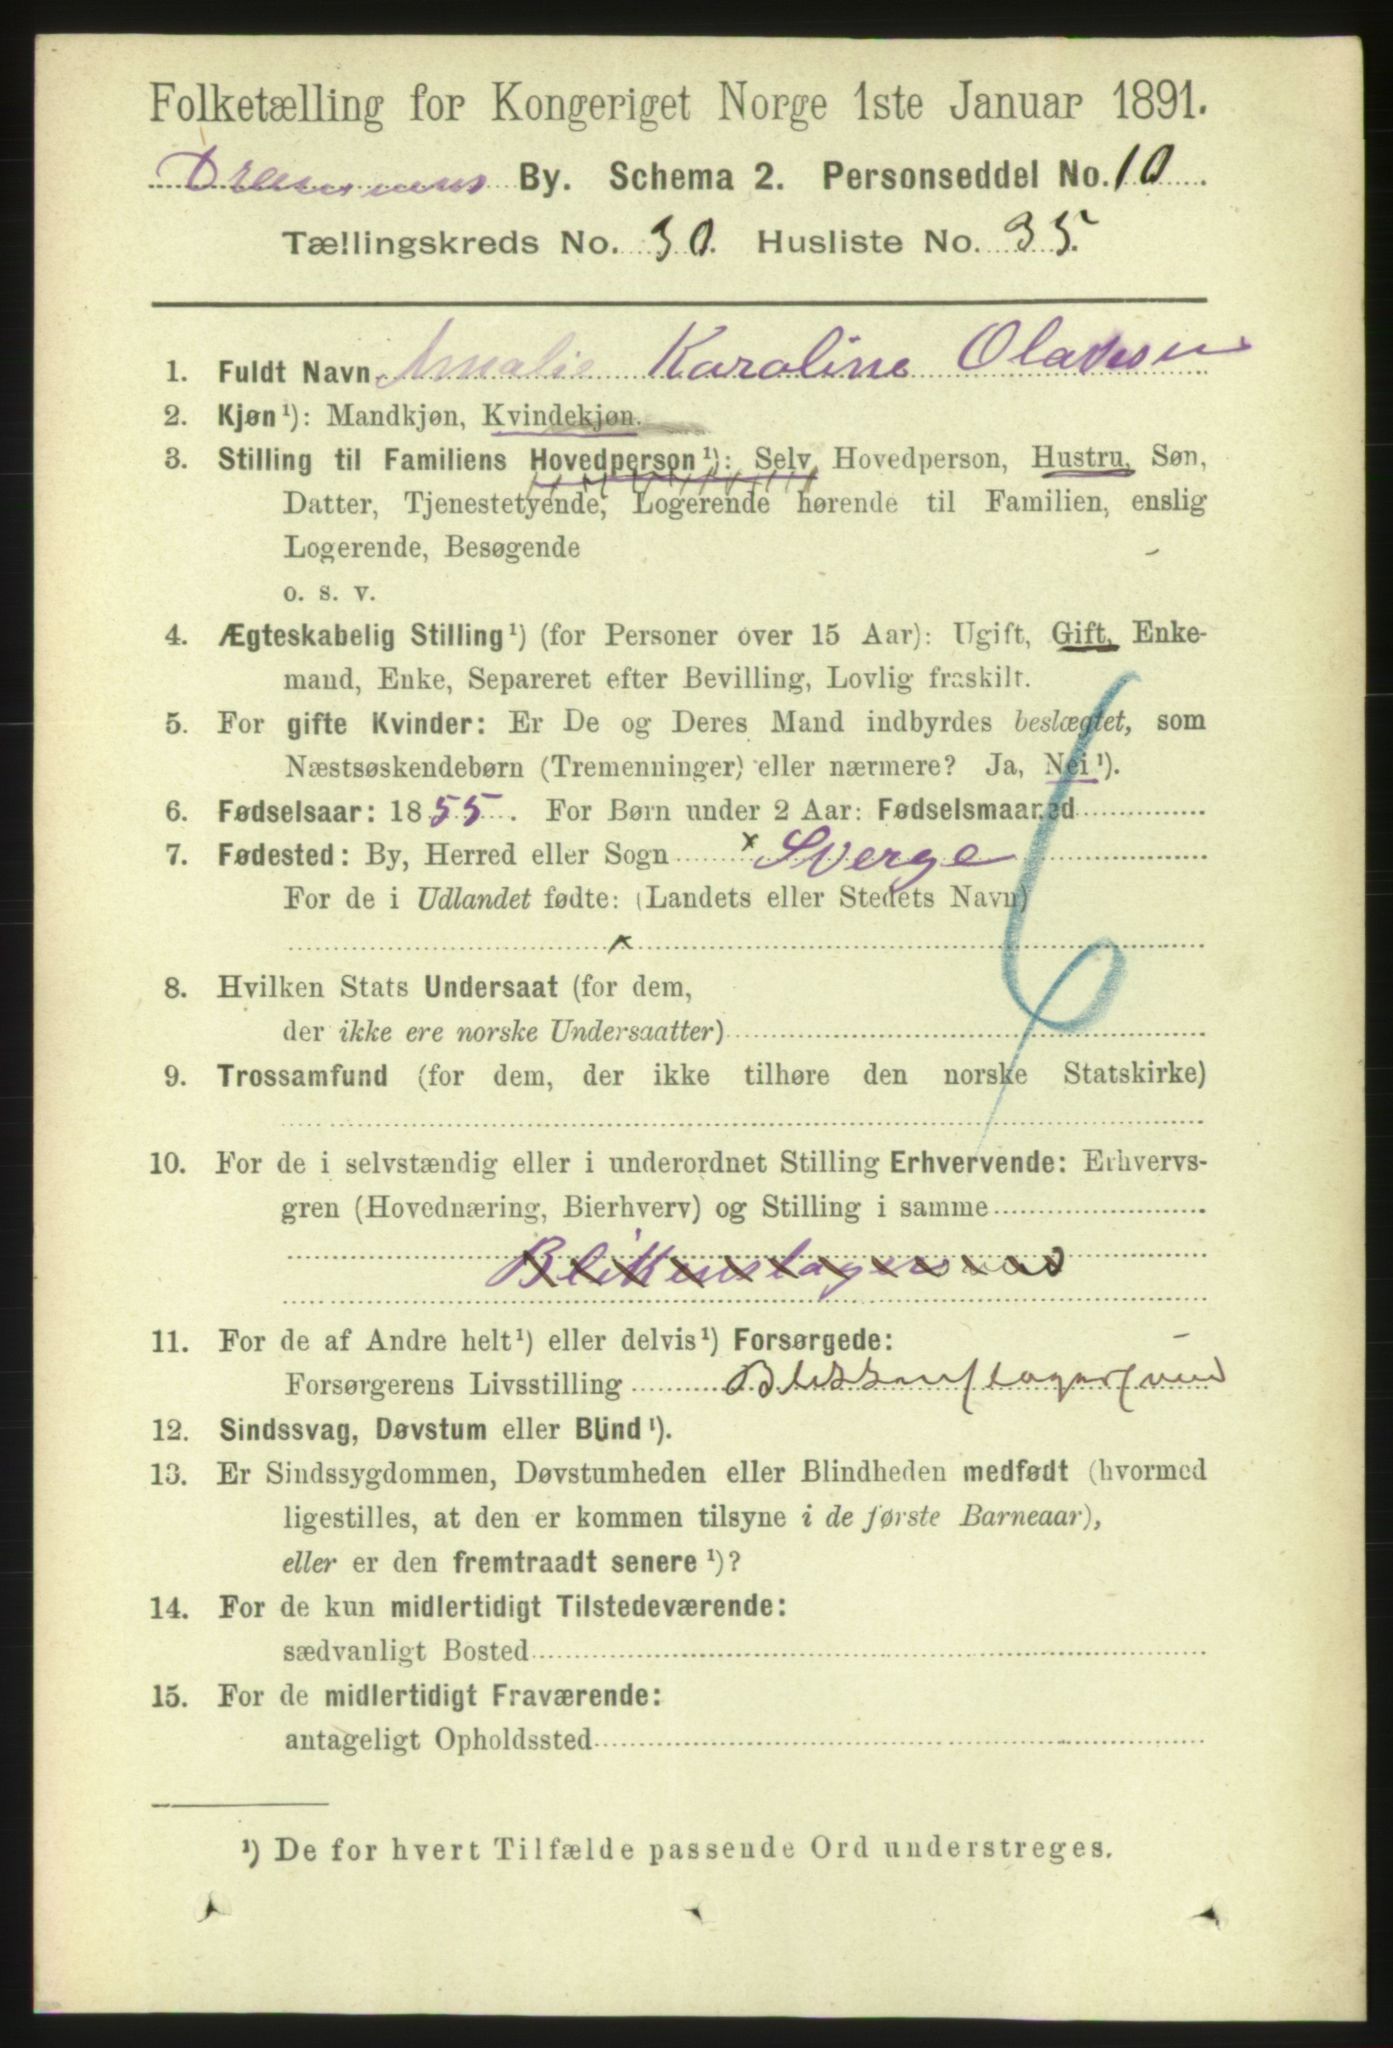 Folketælling for Kongeriget Norge 1ste Januar 1891.
Drammens By. Schema 2. Personseddel No. 10
Tællingskreds No. 30. Husliste No. 35.
1. Fuldt Navn Amalie Karoline Olavesen
2. Kjøn¹): Mandkjøn, Kvindekjøn.
3. Stilling til Familiens Hovedperson¹): Selv Hovedperson, Hustru, Søn,
Datter, Tjenestetyende, Logerende hørende til Familien, enslig
Logerende, Besøgende
o. s. v.
4. Ægteskabelig Stilling¹) (for Personer over 15 Aar): Ugift, Gift, Enke-
mand, Enke, Separeret efter Bevilling, Lovlig fraskilt.
5. For gifte Kvinder: Er De og Deres Mand indbyrdes beslægtet, som
Næstsøskendebørn (Tremenninger) eller nærmere? Ja, Nei¹).
6. Fødselsaar: 1855. For Børn under 2 Aar: Fødselsmaaned
7. Fødested: By, Herred eller Sogn x Sverge
For de i Udlandet fødte: (Landets eller Stedets Navn)
x
8. Hvilken Stats Undersaat (for dem,
der ikke ere norske Undersaatter)
9. Trossamfund (for dem, der ikke tilhøre den norske Statskirke)
10. For de i selvstændig eller i underordnet Stilling Erhvervende: Erhvervs-
gren (Hovednæring, Bierhverv) og Stilling i samme
11. For de af Andre helt¹) eller delvis¹) Forsørgede:
Forsørgerens Livsstilling Blikkenslagersvend
12. Sindssvag, Døvstum eller Blind¹).
13. Er Sindssygdommen, Døvstumheden eller Blindheden medfødt (hvormed
ligestilles, at den er kommen tilsyne i de første Barneaar),
eller er den fremtraadt senere¹)?
14. For de kun midlertidigt Tilstedeværende:
sædvanligt Bosted
15. For de midlertidigt Fraværende:
antageligt Opholdssted
¹) De for hvert Tilfælde passende Ord understreges.